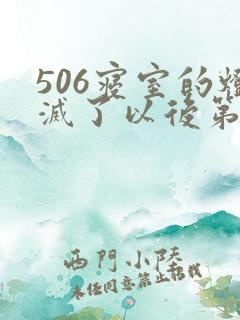 506寢室的燈
滅了以後第
西門小陸
未经同意禁止转载